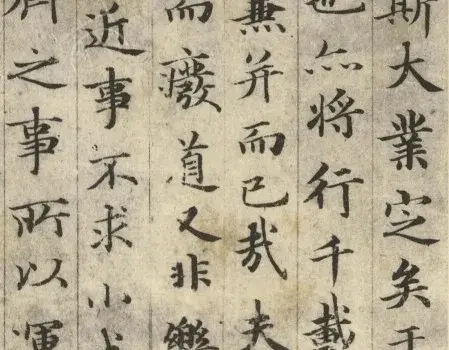 斯大業㝎矣于
也亦將行千載
兼并而已哉夫
而癈道又非樂
近事不求小
齊之事所以運